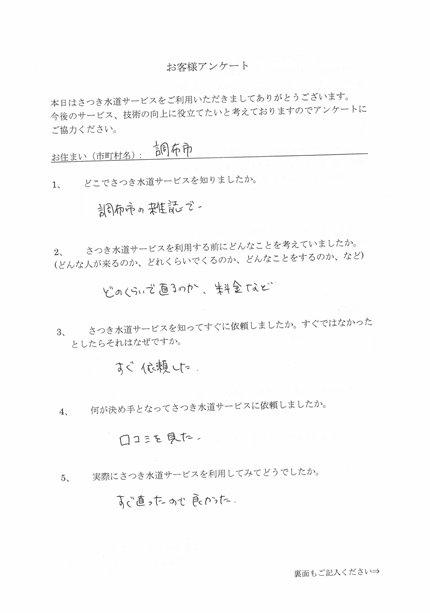 お客様アンケート
本日はさつき水道サービスをご利用いただきましてありがとうございます。
今後のサービス、技術の向上に役立てたいと考えておりますのでアンケートに
ご協力ください。
お住まい（市町村名）: 調布市
1、 どこでさつき水道サービスを知りましたか。
調布市の雑誌で。
2、 さつき水道サービスを利用する前にどんなことを考えていましたか。
(どんな人が来るのか、どれくらいでくるのか、どんなことをするのか、など)
どのくらいで直るのか、料金など
3、 さつき水道サービスを知ってすぐに依頼しましたか。すぐではなかった
としたらそれはなぜですか。
すぐ依頼した.
4、 何が決め手となってさつき水道サービスに依頼しましたか。
口コミを見た。
5、 実際にさつき水道サービスを利用してみてどうでしたか。
すぐ直ったので良かった.
裏面もご記入ください⇒